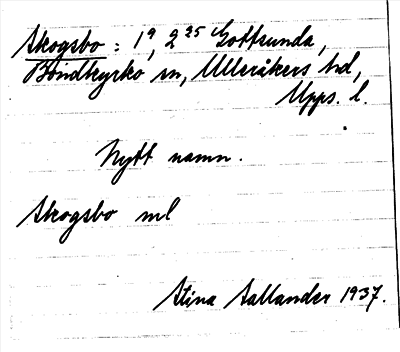 Skogsbo : 1⁹, 2²⁵ Gottsunda,
Bondkyrko sn, Ulleråkers hd,
Upps. l.
Nytt namn.
Skogsbo ml
Stina Sallander 1937.